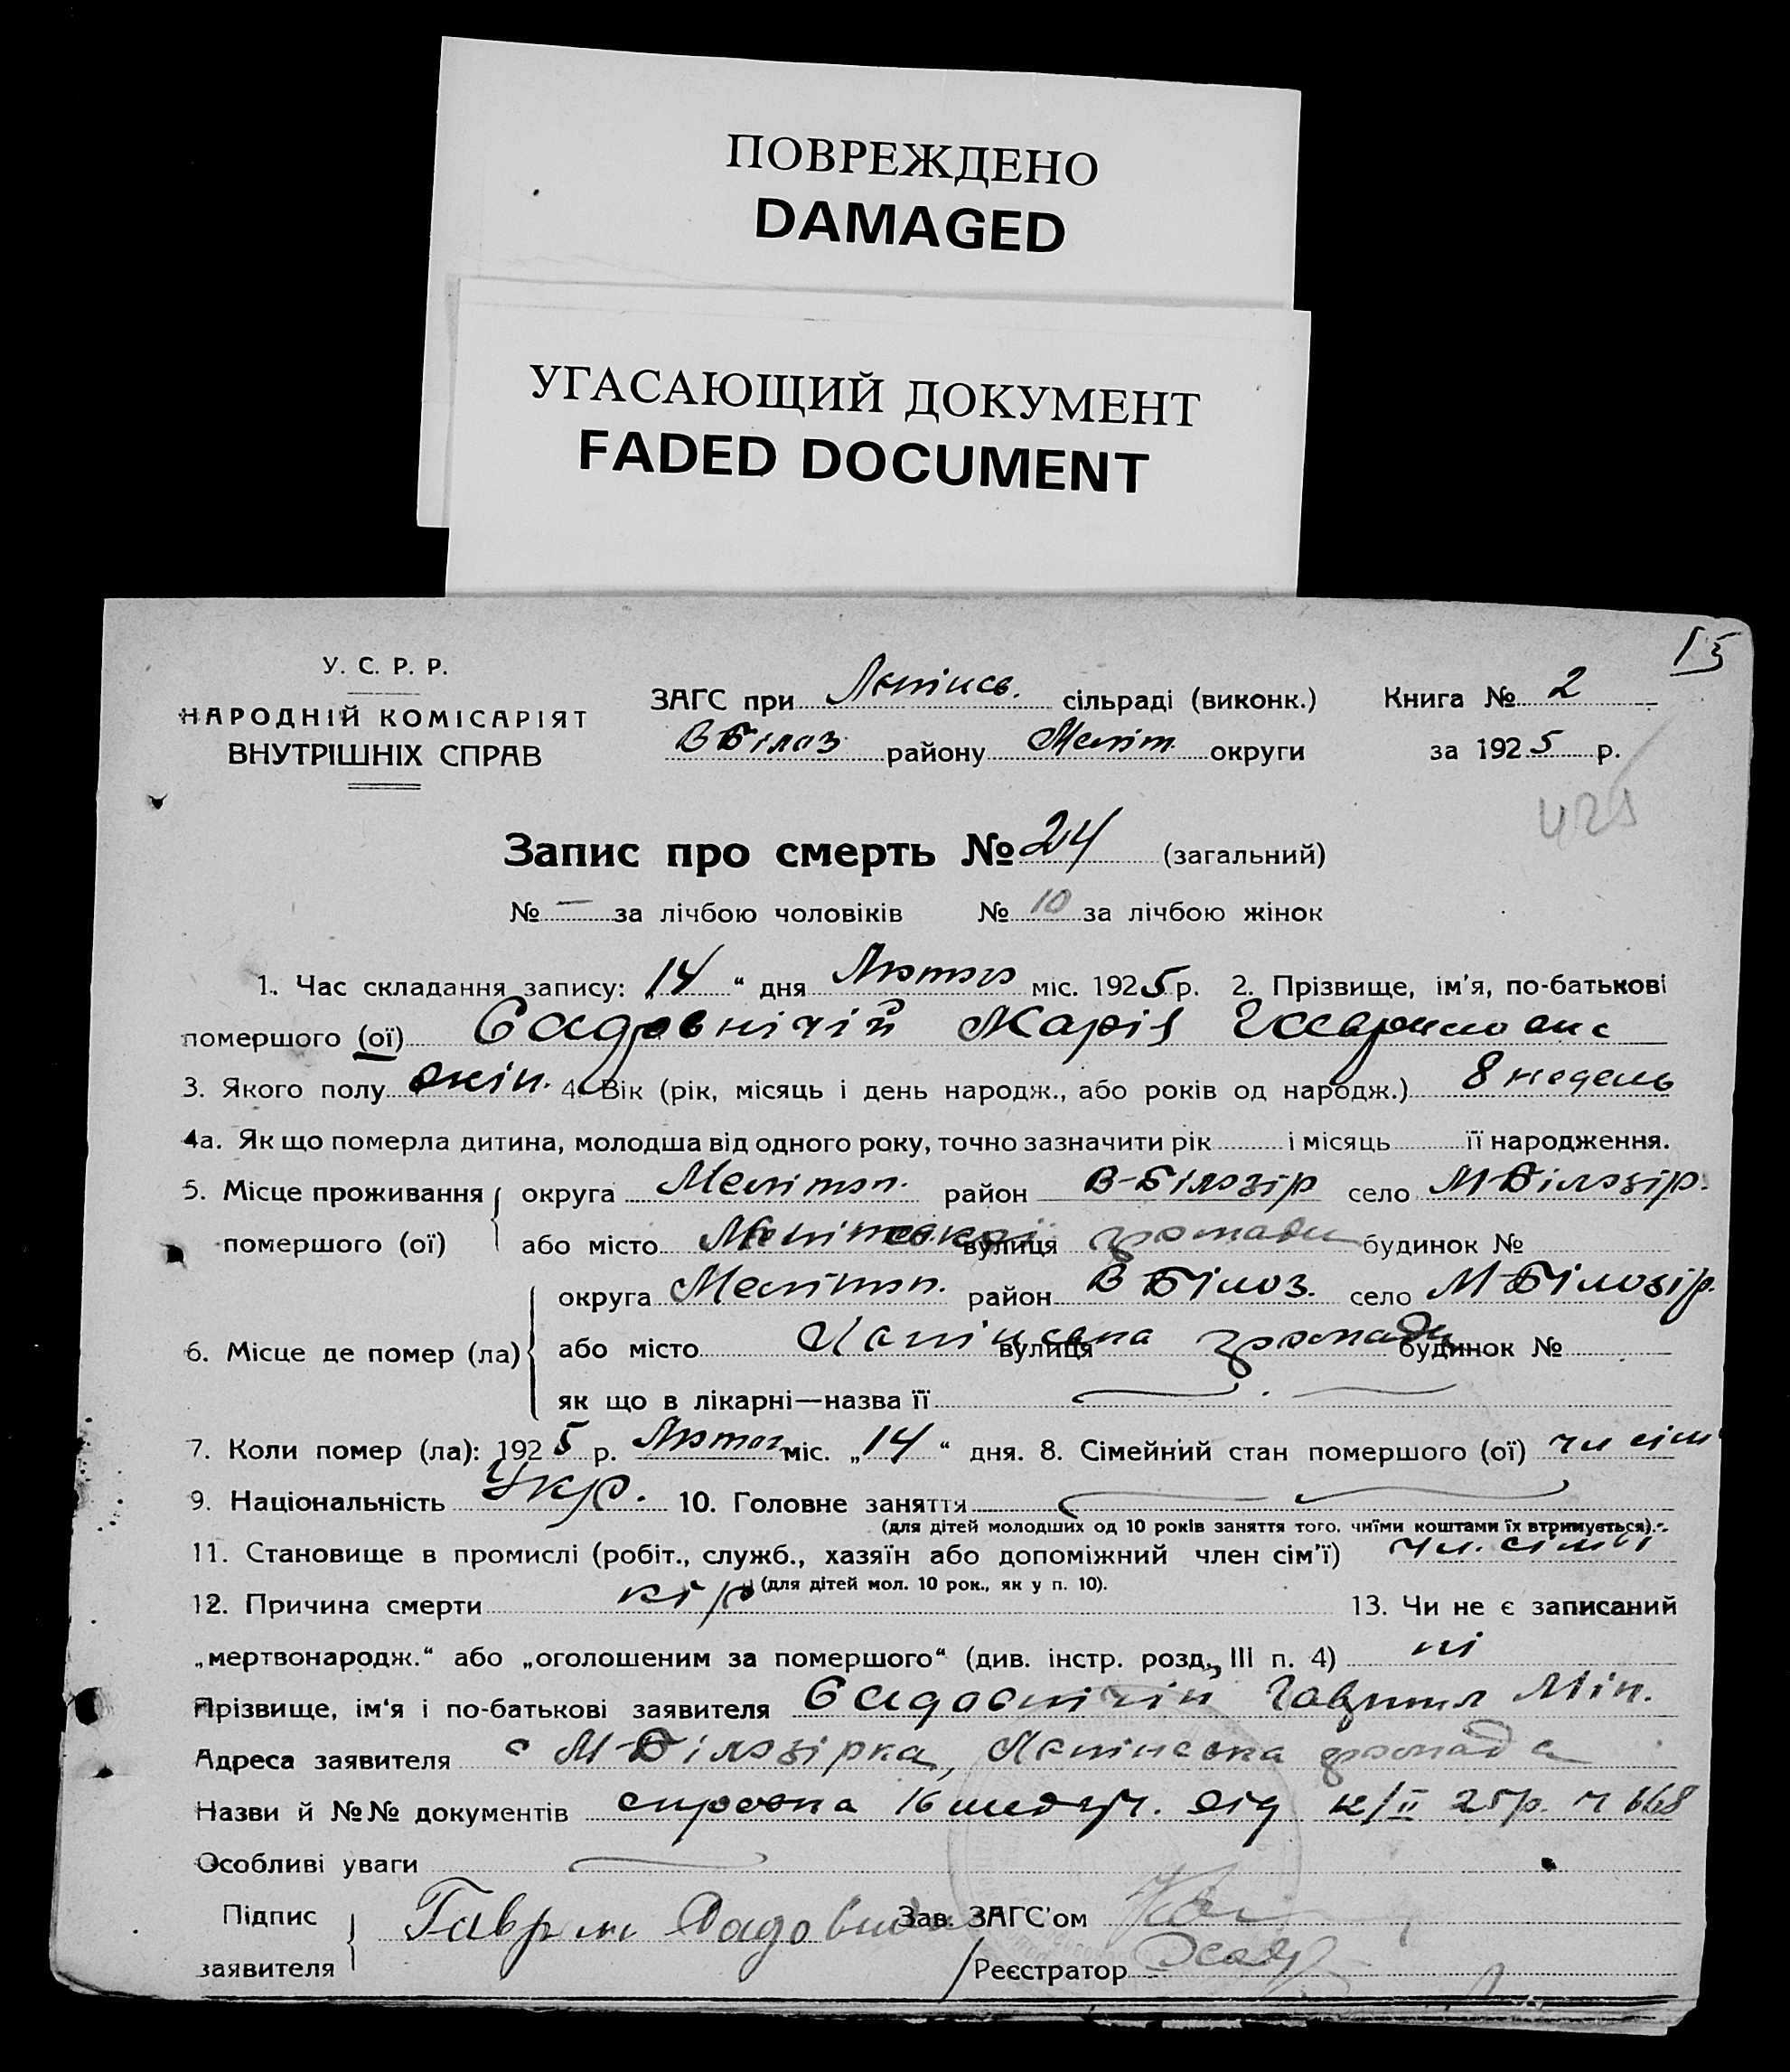 ПОВРЕЖДЕНО
DAMAGED
УГАСАЮЩИЙ ДОКУМЕНТ
FADED DOCUMENT
15
У. С. Р. Р.
НАРОДНІЙ КОМІСАРІЯТ
ВНУТРІШНІХ СПРАВ
ЗАГС при сільраді (виконк.) Книга № 2
В Білоз району Меліт. округи за 1925 р.
425
Запис про смерть № 24 (загальний)
№ — за лічбою чоловіків № 10 за лічбою жінок
1. Час складання запису: „14“ дня Лютого міс. 1925 р. 2. Прізвище, ім'я, по-батькові
помершого (ої) Садовничій Марія Гаврилована
3. Якого полу жін. 4. Вік (рік, місяць і день народж., або років од народж.) 8 недель
4а. Як що померла дитина, молодша від одного року, точно зазначити рік і місяць її народження.
5. Місце проживання округа Мелітоп. район В-Білозір село М-Білозір.
помершого (ої) або місто вулиця громади будинок №
округа Мелітоп. район В Білоз. село М-Білозір.
6. Місце де помер (ла) або місто вулиця громади будинок №
як що в лікарні—назва її
7. Коли помер (ла): 1925 р. Лютог міс. „14“ дня. 8. Сімейний стан помершого (ої) чл сім
9. Національність Укр. 10. Головне заняття
(для дітей молодших од 10 років заняття того, чиїми коштами їх втримується).
11. Становище в промислі (робіт., служб., хазяїн або допоміжний член сім'ї) чл. сімї
(для дітей мол. 10 рок., як у п. 10).
12. Причина смерти кір 13. Чи не є записаний
„мертвонародж.“ або „оголошеним за помершого“ (див. інстр. розд., III п. 4) ні
Прізвище, ім'я і по-батькові заявителя Садовничій Гаврило Мін.
Адреса заявителя с М-Білозірка, громада
Назви й №№ документів справка 16 від 12/II 25 р. ч 668
Особливі уваги
Підпис Гаврил Садовни Зав. ЗАГС'ом
заявителя Реєстратор